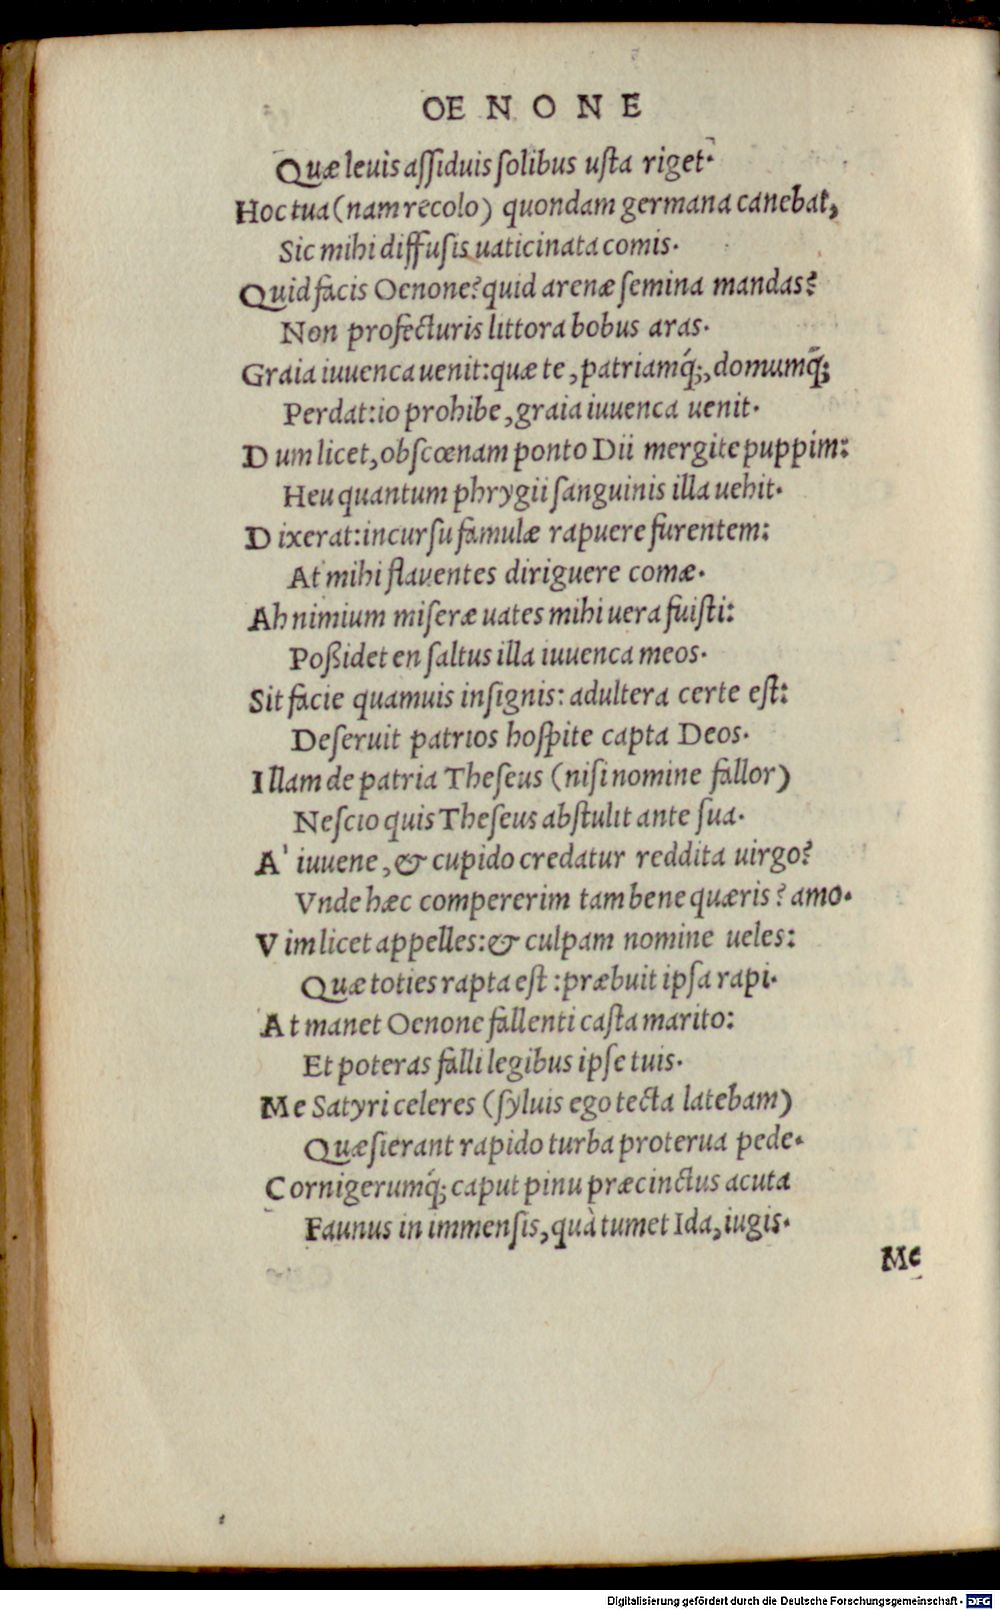 OE N O N E
Quæ leuis aſſiduis ſolibus uſta riget.
Hoc tua (nam recolo) quondam germana canebat,
Sic mihi diffuſis uaticinata comis.
Quid facis Oenone? quid arenæ ſemina mandas?
Non profecturis littora bobus aras.
Graia iuuenca uenit: quæ te, patriamq́;, domumq́;
Perdat: io prohibe, graia iuuenca uenit.
Dum licet, obſcœnam ponto Dii mergite puppim:
Heu quantum phrygii ſanguinis illa uehit.
Dixerat: in curſu famulæ rapuere furentem:
At mihi flauentes diriguere comæ.
Ah nimium miſeræ uates mihi uera fuiſti:
Poßidet en ſaltus illa iuuenca meos.
Sit facie quamuis inſignis: adultera certe eſt:
Deſeruit patrios hoſpite capta Deos.
Illam de patria Theſeus (niſi nomine fallor)
Neſcio quis Theſeus abſtulit ante ſua.
A' iuuene, & cupido credatur reddita uirgo?
Vnde hæc compererim tam bene quæris? amo.
Vim licet appelles: & culpam nomine ueles:
Quæ toties rapta eſt: præbuit ipſa rapi.
At manet Oenone fallenti caſta marito:
Et poteras falli legibus ipſe tuis.
Me Satyri celeres (ſyluis ego tecta latebam)
Quæſierant rapido turba proterua pede.
Cornigerumq́; caput pinu præcinctus acuta
Faunus in immenſis, quà tumet Ida, iugis.
Me
Digitalisierung gefördert durch die Deutsche Forschungsgemeinschaft - DFG